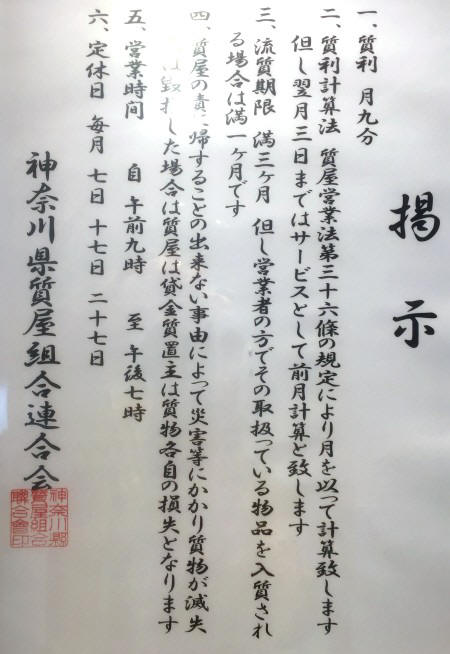 掲示
一、質利 月九分
二、質利計算法 質屋営業法第三十六條の規定により月を以って計算致します
但し翌月三日まではサービスとして前月計算と致します
三、流質期限 満三ヶ月 但し営業者の方でその取扱っている物品を入質され
る場合は満一ヶ月です
四、質屋の責に帰することの出来ない事由によって災害等にかかり質物が滅失
は毀損した場合は質屋は貸金質置主は質物各自の損失となります
五、営業時間 自 午前九時 至 午後七時
六、定休日 毎月 七日 十七日 二十七日
神奈川県質屋組合連合会
神奈川縣
質屋組合
聯合會印